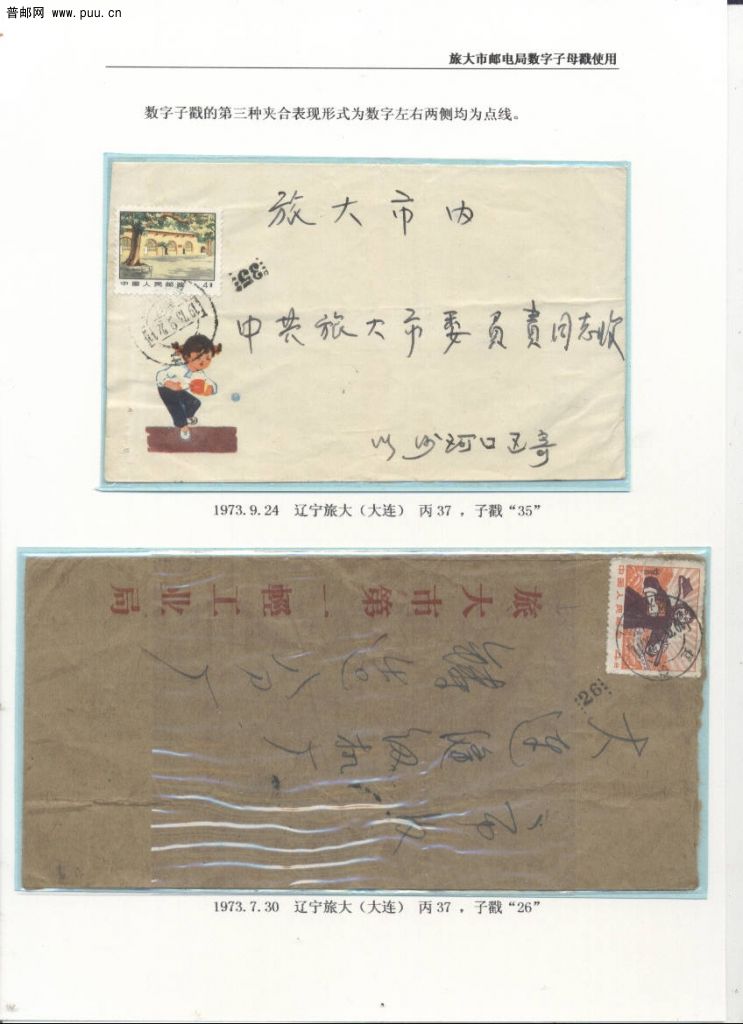 普邮网 www.puu.cn
旅大市邮电局数字子母戳使用
数字子戳的第三种夹合表现形式为数字左右两侧均为点线。
旅大市内
中国人民邮政 4分
35
中共旅大市委员责同志收
沙河口区寄
1973.9.24 辽宁旅大（大连） 丙37 ，子戳“35”
旅大市第二輕工业局
中国人民邮政
26
大连
1973.7.30 辽宁旅大（大连） 丙37 ，子戳“26”